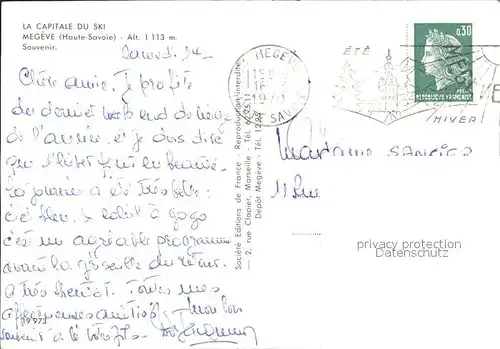 LA CAPITALE DU SKI
MEGÈVE (Haute-Savoie) - Alt. 1 113 m.
Souvenir.
Samedi 24
Chère amie. Je profite
du dernier week end de neige
de l'année, et je dois dire
que l'hiver finit en beauté.
La journée a été très belle:
ciel bleu, soleil à gogo
c'est un agréable programme
avant la grisaille du retour.
A très bientôt. Toutes mes
affectueuses amitiés, mon bon
souvenir à le votre fils
19 973
Société Editions de France - Reproduction interdite
— 2, rue Clapier, Marseille - Tél. 62.25.11
Dépôt Megève - Tél. 12.84
MEGEVE
15 H
16
SAVOIE
ÉTÉ
MEGÈVE
HIVER
0,30
POSTES
REPUBLIQUE FRANÇAISE
Madame SANCIER
11 Rue
privacy protection
Datenschutz